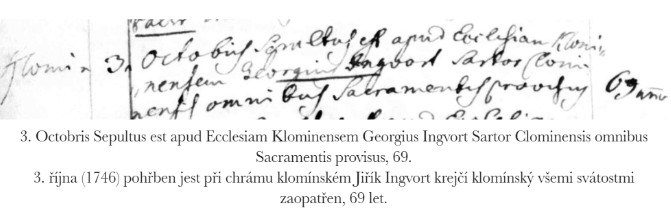 Klomin 3. Octobris Sepultus est apud Ecclesiam Klomi-
nensem Georgius Ingvort Sartor Clomi
nensis omnibus Sacramentis provisus 69 anno
3. Octobris Sepultus est apud Ecclesiam Klominensem Georgius Ingvort Sartor Clominensis omnibus
Sacramentis provisus, 69.
3. října (1746) pohřben jest při chrámu klomínském Jiřík Ingvort krejčí klomínský všemi svátostmi
zaopatřen, 69 let.